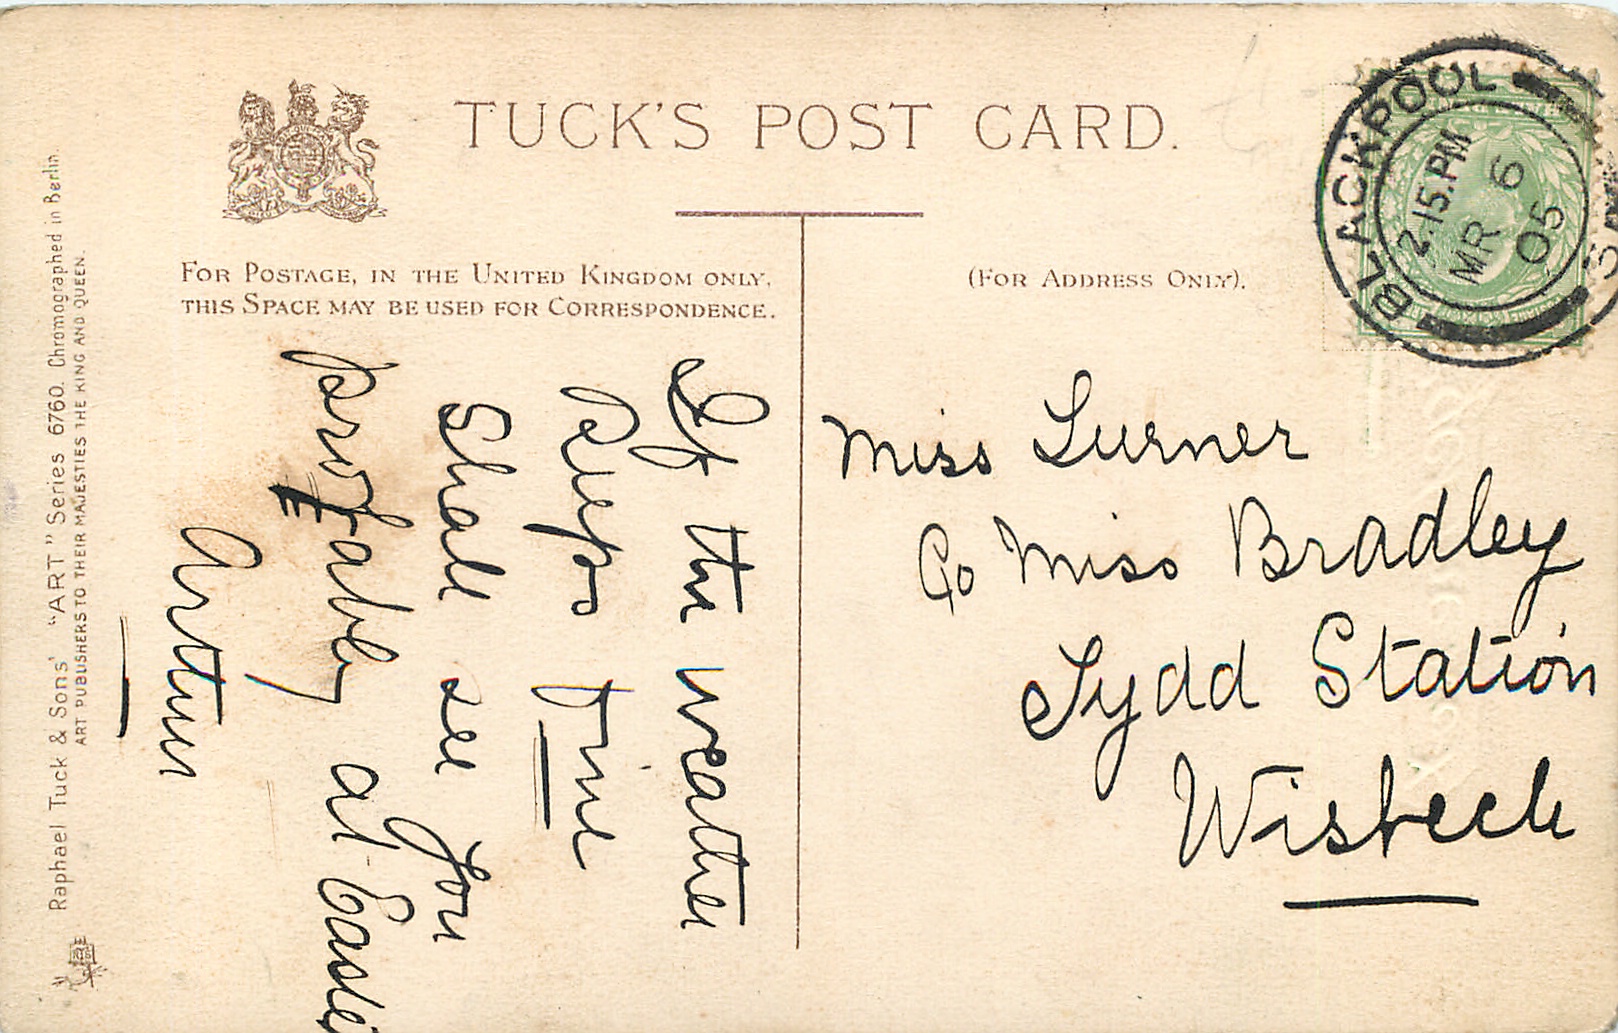 TUCK'S POST CARD.
FOR POSTAGE, IN THE UNITED KINGDOM ONLY,
THIS SPACE MAY BE USED FOR CORRESPONDENCE.
(FOR ADDRESS ONLY).
BLACKPOOL
2.15.PM
MR 6
05
If the weather
Keeps Fine
Shall see you
probably at Easter
Arthur
Miss Turner
C/o Miss Bradley
Tydd Station
Wisbech
Raphael Tuck & Sons' "ART" Series 6760. Chromographed in Berlin.
ART PUBLISHERS TO THEIR MAJESTIES THE KING AND QUEEN.